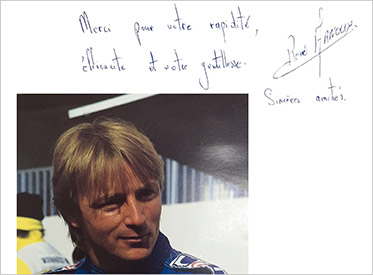 Merci pour votre rapidité,
éfficacité et votre gentillesse.
René ARNOUX
Sincères amitiés.